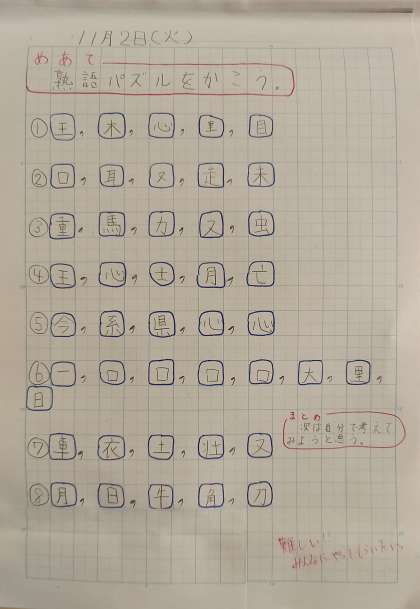 11月2日(火)
めあて
熟語パズルをかこう。
①王,木,心,里,目
②口,耳,又,走,未
③重,馬,力,ス,虫
④王,心,士,月,亡
⑤今,系,県,心,心
⑥一,口,口,口,口,大,里,
日
まとめ
次は自分で考えて
みようと思う。
⑦車,衣,土,壮,又
⑧月,日,牛,角,刀
難しい!!
みんなにやってもらいたい